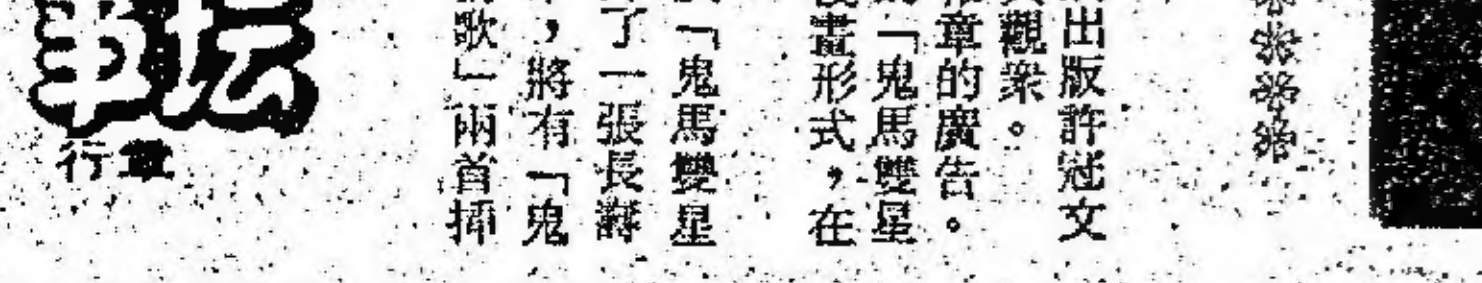 出版許冠文
觀衆。
章的廣告。
「鬼馬雙星
畫形式，在
「鬼馬雙星
了一張長
，將有「鬼
歌」兩首插
坛
事
章行